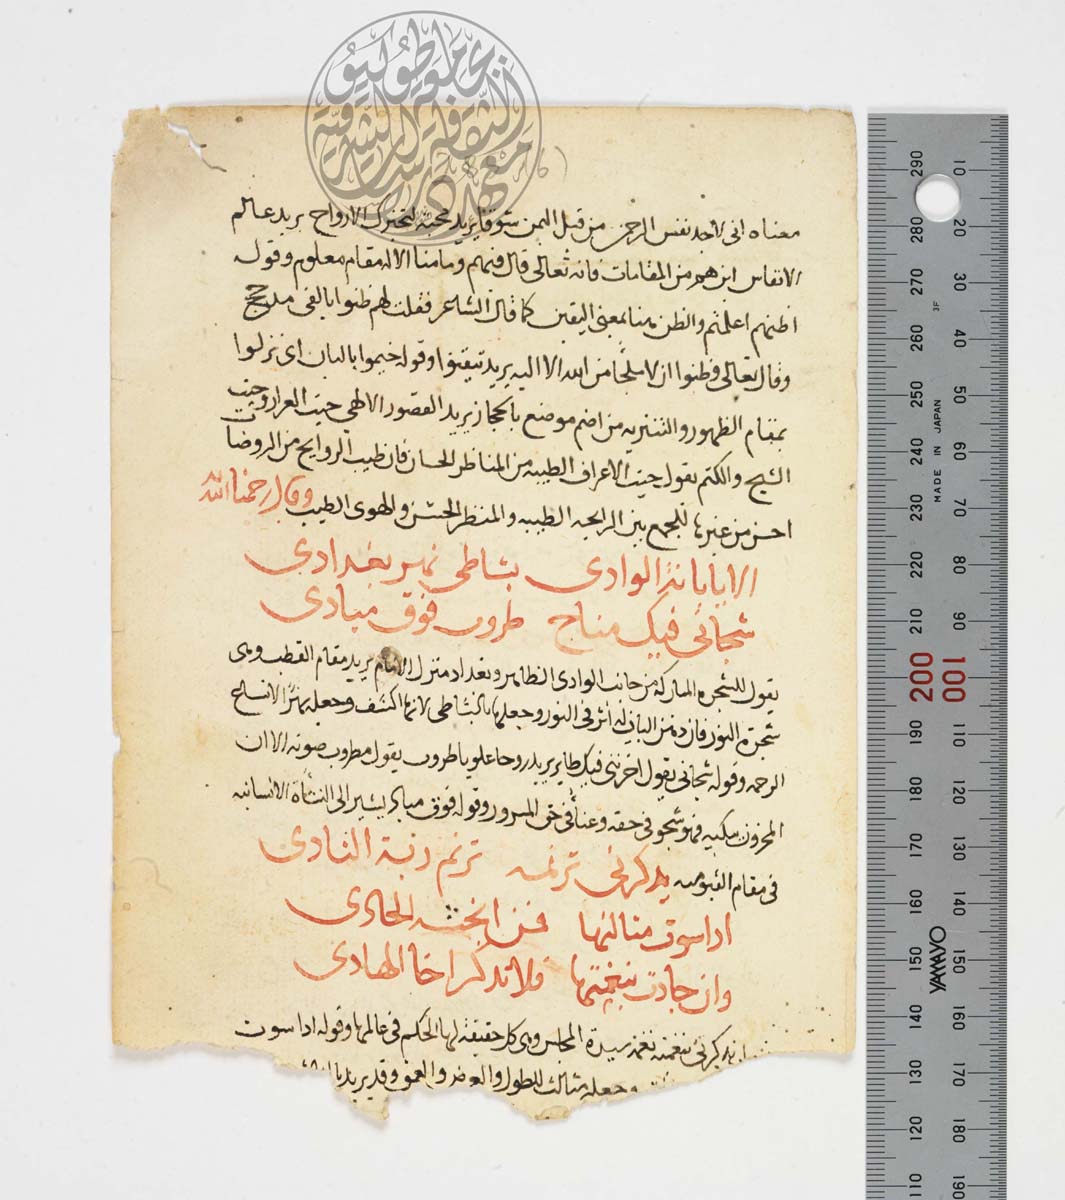 معناه انى لاجد نفس الرحمن من قبل اليمن شوقا يريد محبة لتحبرك الارواح يريد عالم
الانفاس اين هم من المقامات فانه تعالى قال فيهم وما منا الا له مقام معلوم وقوله
اظنهم اعلمتم والظن هنا بمعنى اليقين كما قال الشاعر فقلت لهم ظنوا بالفى مدجج
وقال تعالى وظنوا ان لا ملجأ من الله الا اليه يريد تيقنوا وقوله خيموا بالبان اى نزلوا
بمقام الظهور والتنزيه من اضم موضع بالحجاز يريد القصور الالهى حيث العرار وحيث
الشيح والكتم يقول حيث الاعراف الطيبه من المناظر الحسان فان طيب الروايح من الروضات
احسن من غيرها للجمع بين الرايحه الطيبه والمنظر الحسن والهوى الطيب وقال رحمنا الله
الا يا بانة الوادى بشاطى نهر بغدادى
شجانى فيك مناح طروب فوق ميادى
يقول للشجره المباركه من جانب الوادى الظاهر وبغداد منزل الامام يريد مقام القطب وهى
شجرة النور فان دهن البان له اثر فى النور وجعلها بالشاطى لانها اكشف وجعله نهرا لاتساع
الرحمه وقوله شجانى يقول احزننى فيك طاير يريد روحا علويا طروب يقول مطروب صوته الا ان
المحزون يبكيه فهو شجو فى حقه وغناء فى حق المسرور وقوله فوق مياد يشير الى النشأة الانسانيه
فى مقام القيوميه يذكرنى ترنمه ترنم ربة النادى
اذا سوت مثالثها فمن انجشه الحادى
وان جادت بنغمتها فلا تذكر اخا الهادى
يذكرنى بنغمته نغمة سيدة المجلس وهى كل حقيقة لها الحكم فى عالمها وقوله اذا سوت
وجعله مثالث للطول والعرض والعمق وقد يريد